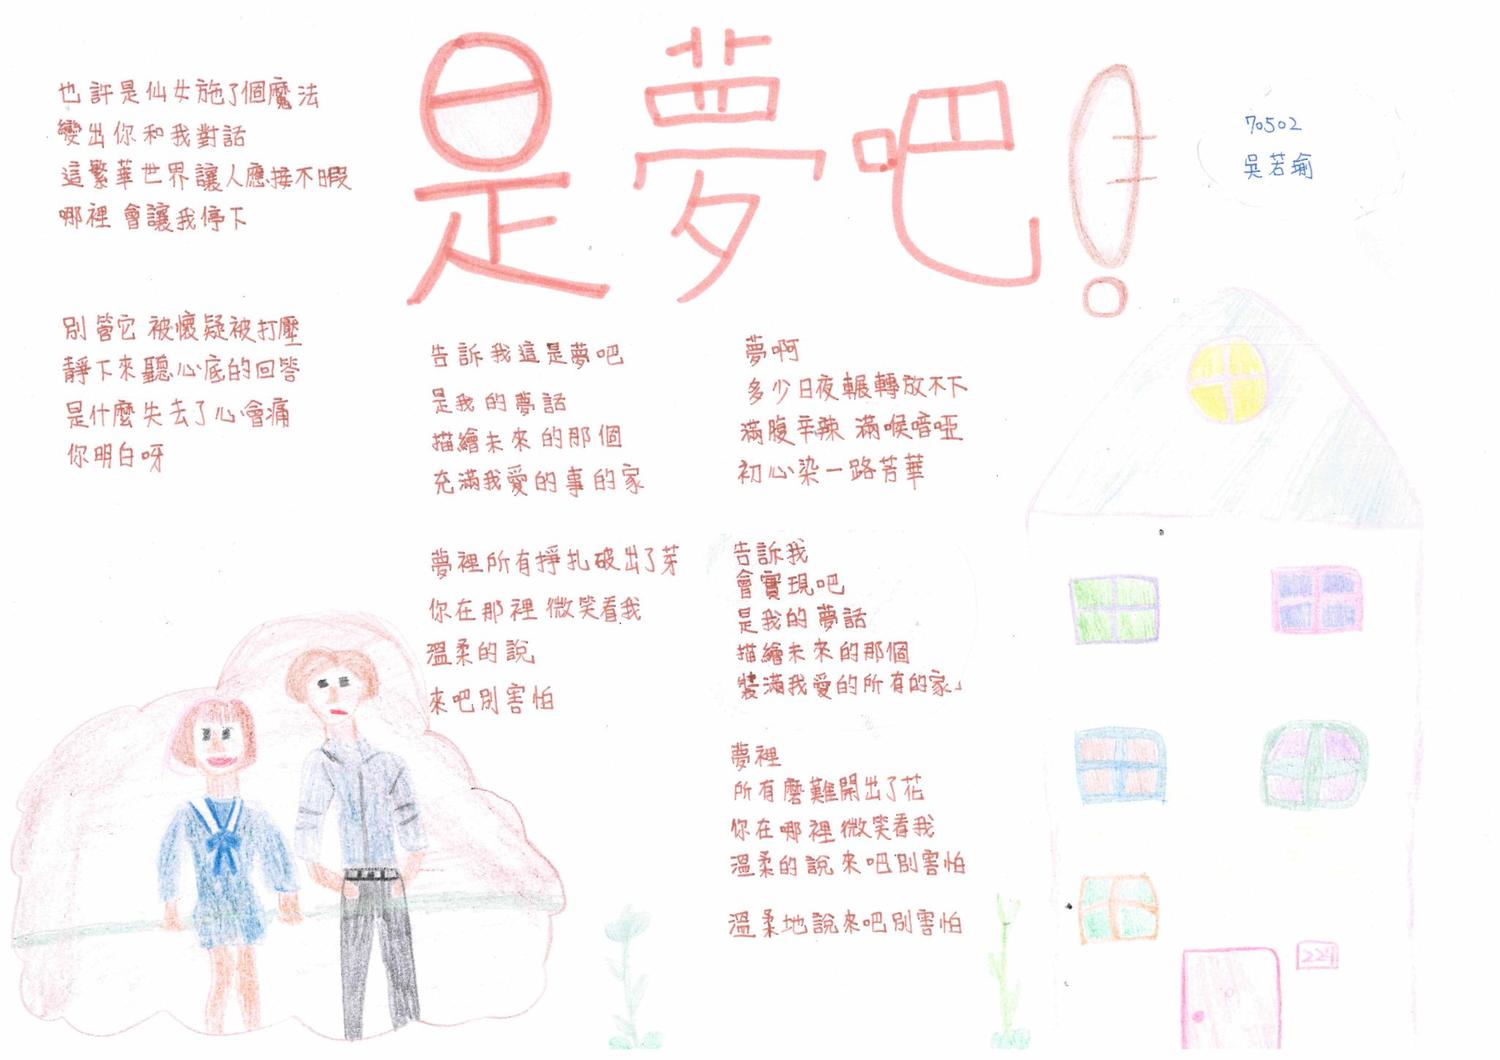 是夢吧！
70502
吳若瑜
也許是仙女施了個魔法
變出你和我對話
這繁華世界讓人應接不暇
哪裡 會讓我停下
別管它 被懷疑被打壓
靜下來聽心底的回答
是什麼失去了心會痛
你明白呀
告訴我這是夢吧
是我的夢話
描繪未來的那個
充滿我愛的事的家
夢裡所有掙扎破出了芽
你在那裡 微笑看我
溫柔的說
來吧別害怕
夢啊
多少日夜輾轉放不下
滿腹辛辣 滿喉喑啞
初心染一路芳華
告訴我
會實現吧
是我的夢話
描繪未來的那個
裝滿我愛的所有的家」
夢裡
所有磨難開出了花
你在哪裡 微笑看我
溫柔的說來吧別害怕
溫柔地說來吧別害怕
224